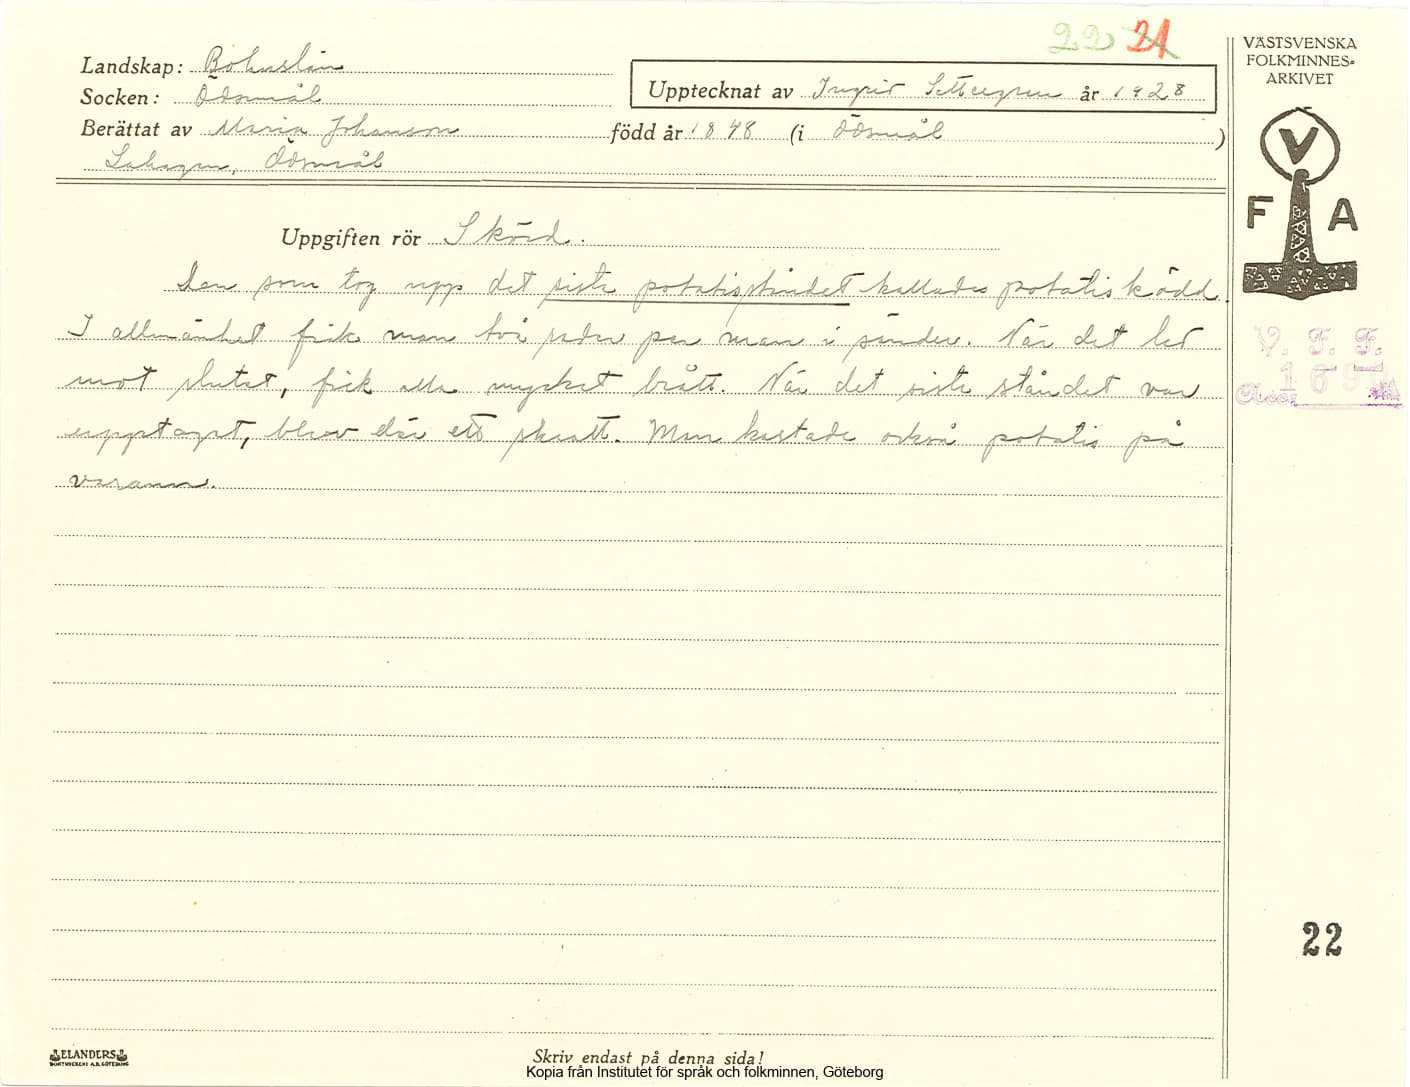 22 21
VÄSTSVENSKA
FOLKMINNES-
ARKIVET
Landskap: Bohuslän
Socken: Ödsmål
Upptecknat av Ingrid Settergren år 1928
Berättat av Maria Johanson född år 1848 (i Ödsmål)
Ödsmål
V
F A
Uppgiften rör Skörd.
Den som tog upp det sista potatisståndet kallades potatisködd.
I allmänhet fick man två rader per man i sänder. När det led
mot slutet, fick alla mycket brått. När det sista ståndet var
upptaget, blev där ett skratt. Man kastade också potatis på
varann.
V. F. F.
22
ELANDERS
Skriv endast på denna sida!
Kopia från Institutet för språk och folkminnen, Göteborg